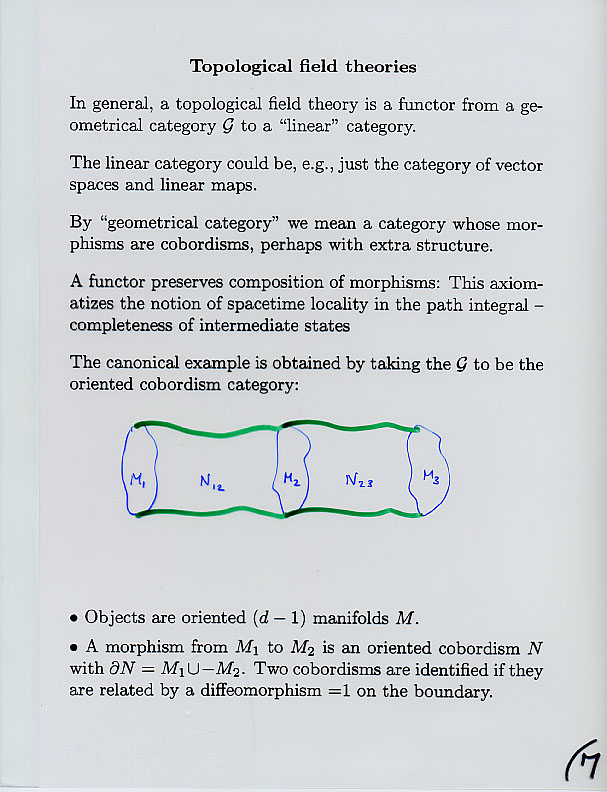 Topological field theories
In general, a topological field theory is a functor from a ge-
ometrical category 𝒢 to a “linear” category.
The linear category could be, e.g., just the category of vector
spaces and linear maps.
By “geometrical category” we mean a category whose mor-
phisms are cobordisms, perhaps with extra structure.
A functor preserves composition of morphisms: This axiom-
atizes the notion of spacetime locality in the path integral –
completeness of intermediate states
The canonical example is obtained by taking the 𝒢 to be the
oriented cobordism category:
M₁ N₁₂ M₂ N₂₃ M₃
• Objects are oriented (d − 1) manifolds M.
• A morphism from M₁ to M₂ is an oriented cobordism N
with ∂N = M₁∪−M₂. Two cobordisms are identified if they
are related by a diffeomorphism =1 on the boundary.